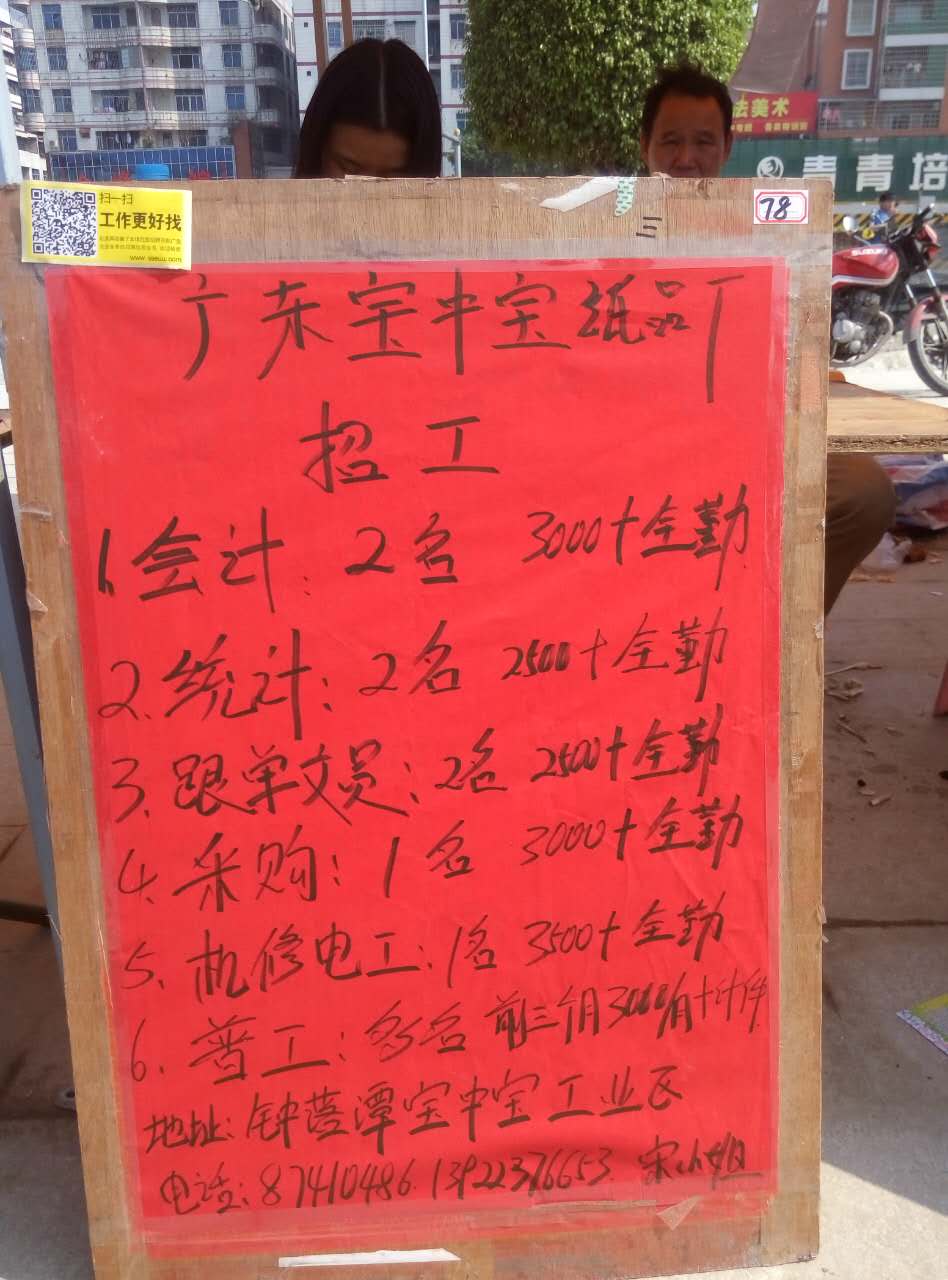 法美术
青青培
扫一扫
工作更好找
78
三
广东宝中宝纸品厂
招工
1.会计:2名 3000+全勤
2.统计:2名 2500+全勤
3.跟单文员:2名 2500+全勤
4.采购:1名 3000+全勤
5.机修电工:1名 3500+全勤
6.普工:多名 前三个月3000/月+计件
地址:钟落潭宝中宝工业区
电话:87410486. 13922376653. 宋小姐